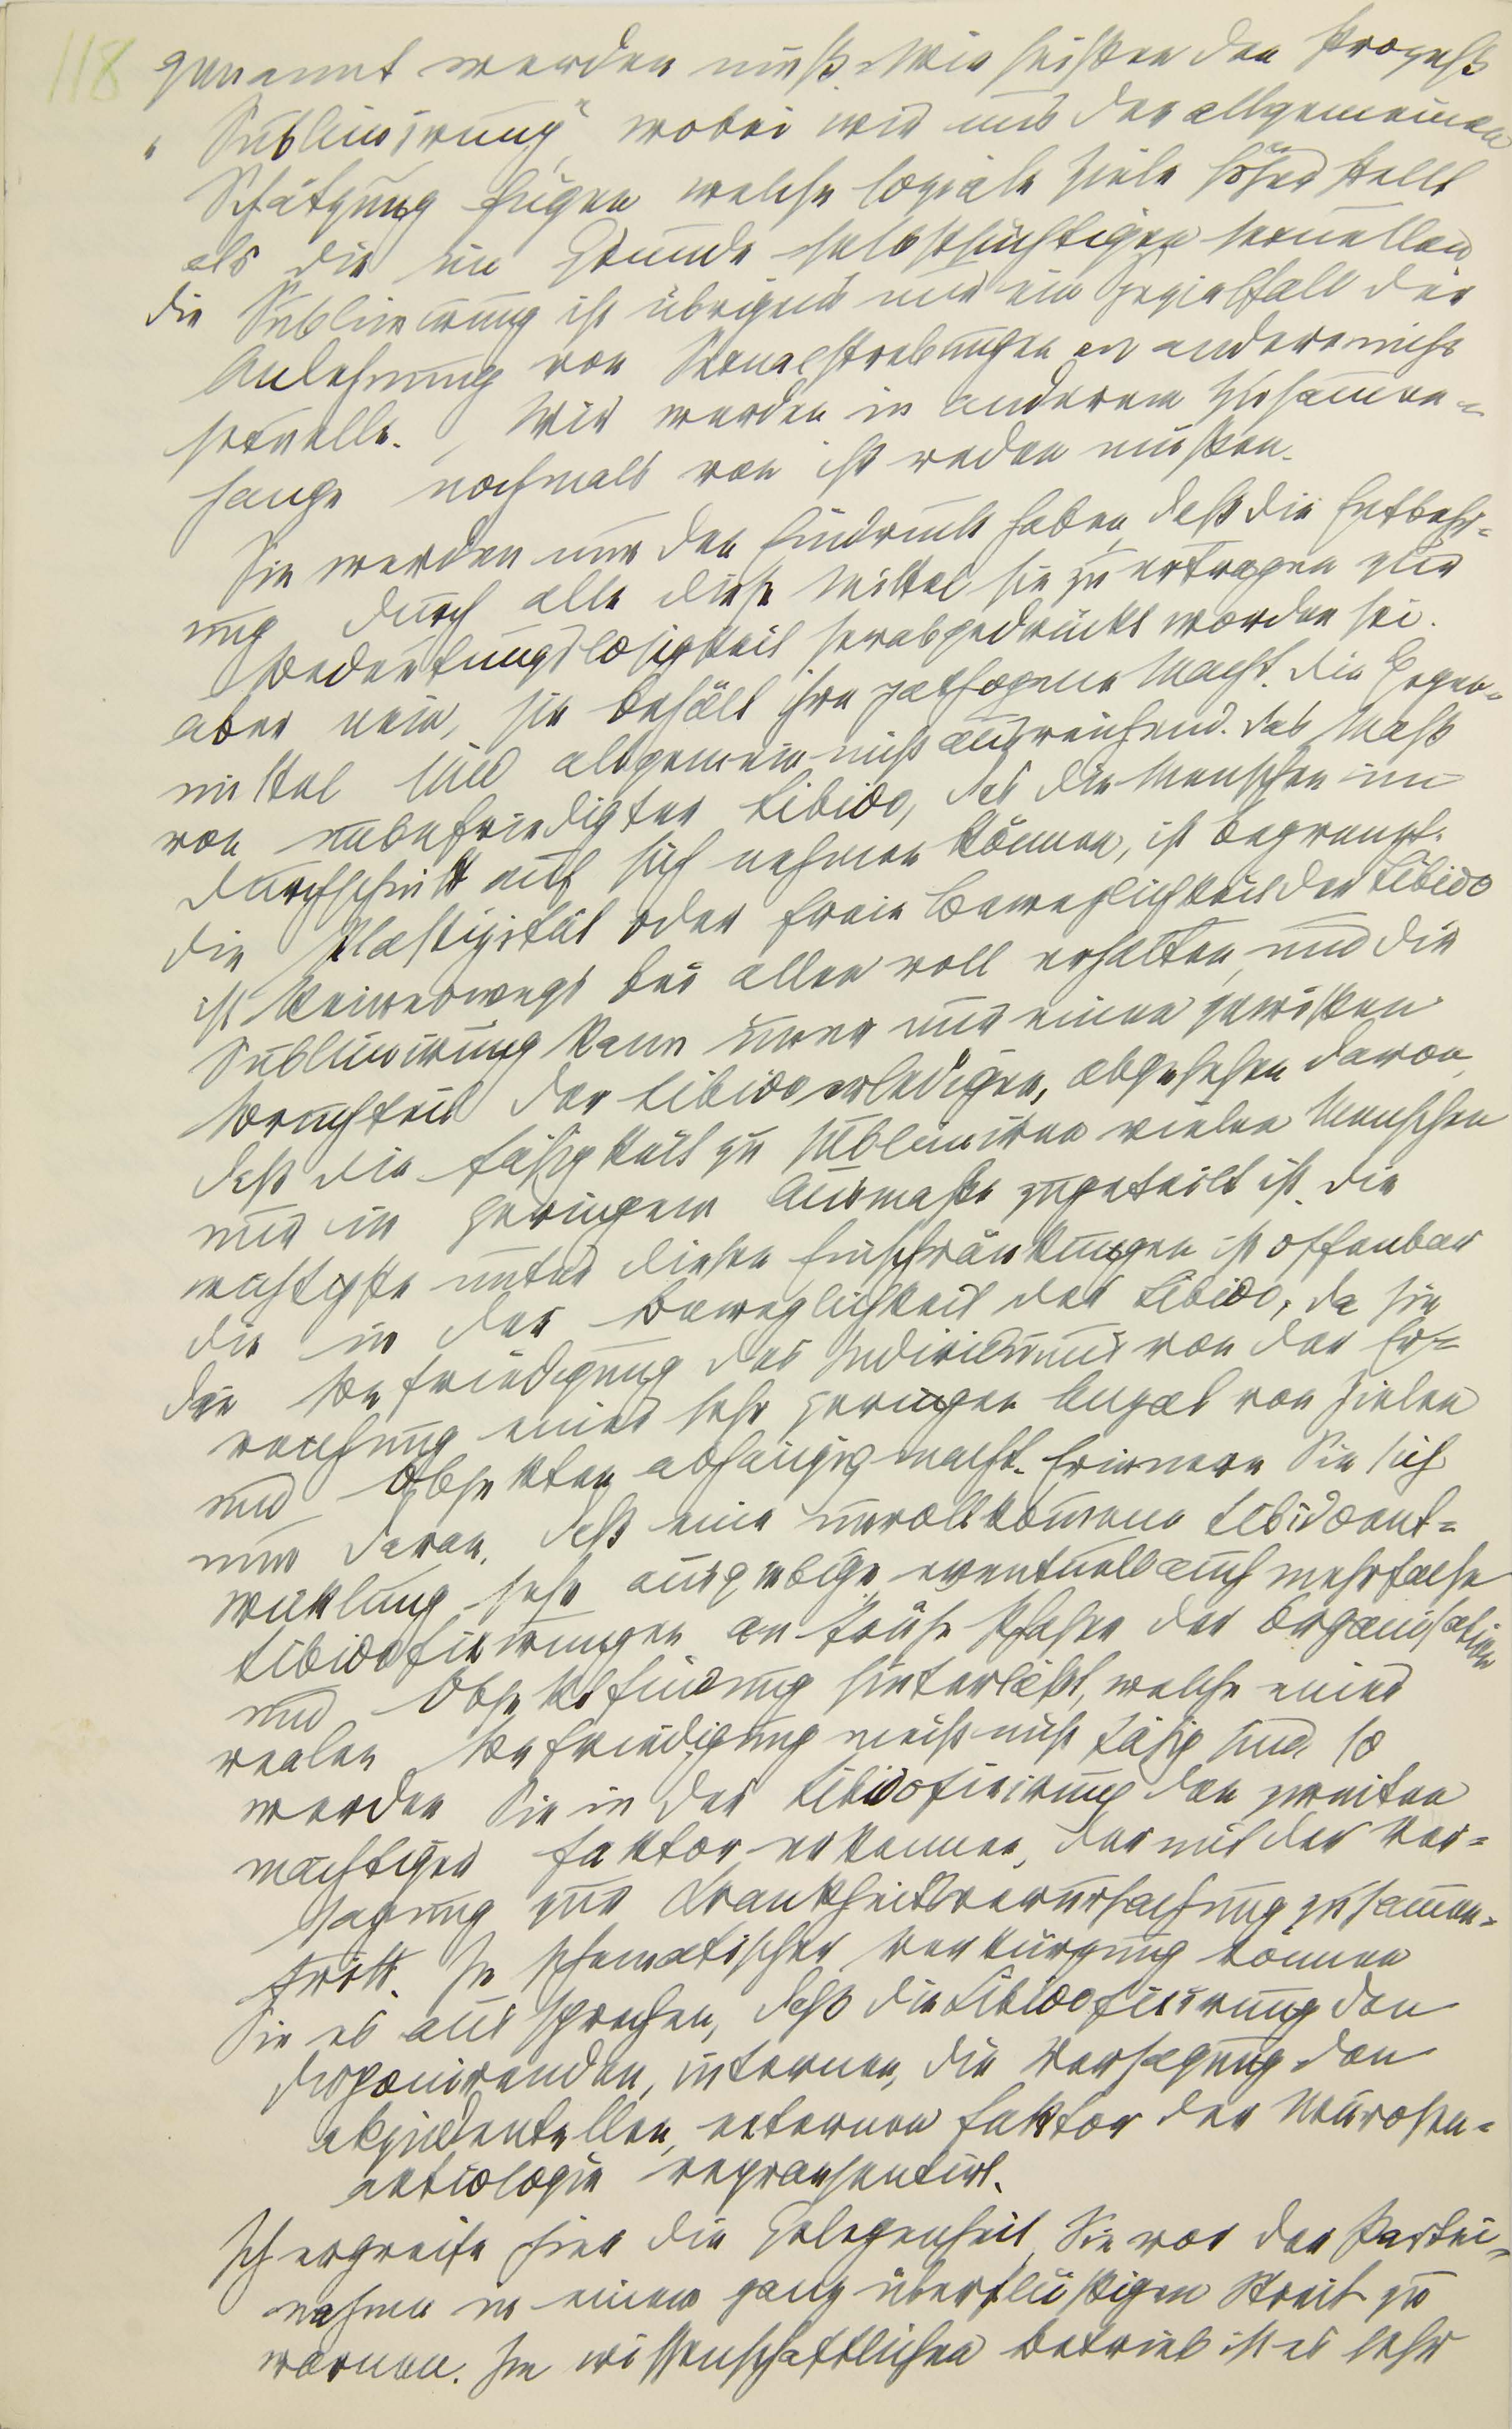 118
genannt werden muß. Wir heißen den Prozeß
„Sublimirung“, wobei wir uns der allgemeinen
Schätzung fügen welche soziale Ziele höher stellt
als die im Grunde selbstsüchtigen sexuellen
die Sublimirung ist übrigens nur ein Spezialfall der
Anlehnung von Sexualstrebungen an andere nicht
sexuelle. Wir werden in anderem Zusammen=
hange nochmals von ihr reden müssen.
Sie werden nun den Eindruck haben, daß die Entbehr=
ung durch alle diese Mittel sie zu ertragen zur
Bedeutungslosigkeit herabgedrückt worden sei.
aber nein, sie behält ihre pathogene Macht. die Gegen=
mittel sind allgemein nicht ausreichend. das Maß
von unbefriedigter Libido, das die Menschen im
durchschnitt auf sich nehmen können, ist begrenzt.
die Plastizität oder freie Beweglichkeit der Libido
ist keineswegs bei allen voll erhalten, und die
Sublimirung kann immer nur einen gewissen
Bruchteil der Libido erledigen, abgesehen davon,
daß die Fähigkeit zu sublimiren vielen Menschen
nur in geringem Ausmaße zugeteilt ist. die
wichtigste unter diesen Einschränkungen ist offenbar
die in der Beweglichkeit der Libido, da sie
die Befriedigung des Individuums von der Er=
reichung einer sehr geringen Anzal von Zielen
und Objekten abhängig macht. Erinnern Sie sich
nur daran, daß eine unvollkommene Libidoent=
wicklung sehr ausgiebige, eventuell auch mehrfache
Libidofixirungen an frühe Phasen der Organisation
und Objektfindung hinterläßt, welche einer
realen Befriedigung meist nicht fähig sind, so
werden Sie in der Libidofixirung den zweiten
mächtigen Faktor erkennen, der mit der Ver=
sagung zur Krankheitsverursachung zusammen=
tritt. In schematischer Verkürzung können
Sie es aussprechen, daß die Libidofixirung den
disponirenden, internen, die Versagung den
akzidentellen, externen Faktor der Neurosen=
aetiologie repraesentirt.
Ich ergreife hier die Gelegenheit, Sie vor der Partei=
nahme in einem ganz überflüssigen Streit zu
warnen. Im wissenschaftlichen Betrieb ist es sehr